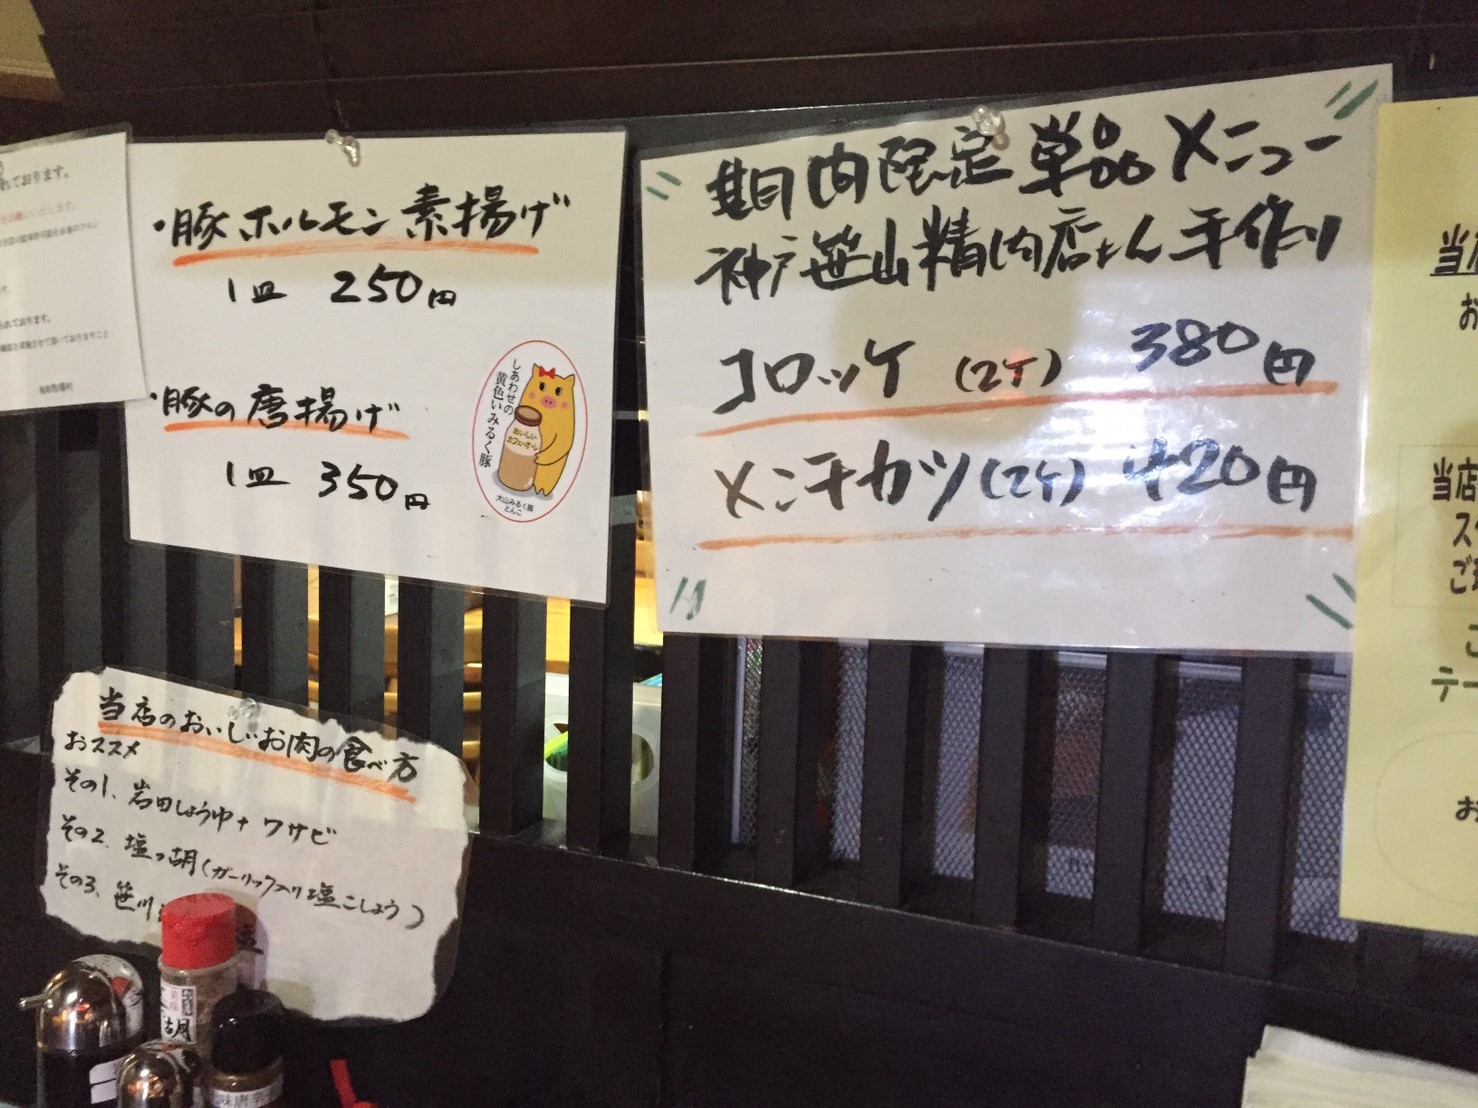 れております。
られております。
・豚ホルモン素揚げ
1皿 250円
・豚の唐揚げ
1皿 350円
しあわせの
黄色いみるく豚
おいしい
カフェ・オ・レ
大山みるく豚
とんこ
期内限定単品メニュー
神戸笹山精肉店さん手作り
コロッケ(2ケ) 380円
メンチカツ(2ケ) 420円
当店のおいしいお肉の食べ方
おススメ
その1、岩田しょうゆ+ワサビ
その2、塩っ胡(ガーリック入り塩こしょう)
その3、笹川
塩
胡
味唐辛
当店
お
当店
ス
ご
こ
テー
お